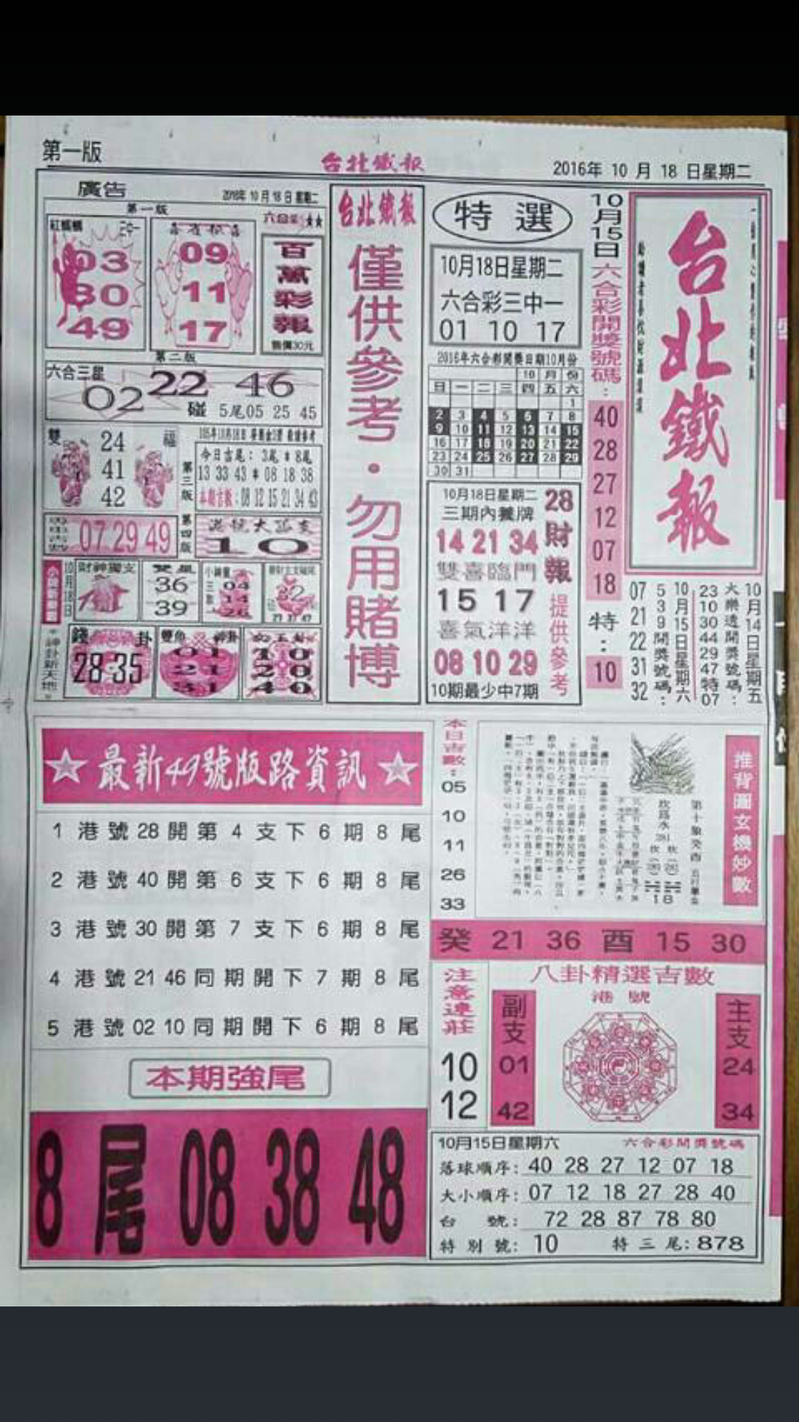 第一版
台北鐵報
2016年 10 月 18 日星期二
廣告
第一版
2016年10月18日星期二
紅螞蟻
03
30
49
09
11
17
六合彩
百萬彩報
售價30元
第二版
六合三星
02 22 46
碰 5尾05 25 45
雙
福
24
41
42
第三版
今日吉尾: 3尾*8尾
13 33 43 * 08 18 38
本期吉數:08 12 15 21 34 43
07.29 49
第四版
港號大孤支
10
10月18日
財神獨支
雙鳳
36
39
小神龍
三數
04
14
26
32
神卦新天地
錢 卦
28-35
雙魚 神卦
01
21
31
10
20
40
台北鐵報
僅供參考·勿用賭博
特選
10月18日星期二
六合彩三中一
01 10 17
2016年六合彩開獎日期10月份
10 月 份
日 一 二 三 四 五 六
1
2 3 4 5 6 7 8
9 10 11 12 13 14 15
16 17 18 19 20 21 22
23 24 25 26 27 28 29
30 31
10月18日星期二
三期內養牌
14 21 34
雙喜臨門
15 17
喜氣洋洋
08 10 29
10期最少中7期
28財報
提供參考
10月15日六合彩開獎號碼:
40
28
27
12
07
18
特:
10
台北鐵報
10月14日星期五
大樂透開獎號碼:
23 10 30 44 29 47 特07
10月15日星期六
539開獎號碼:
07 21 22 31 32
☆最新49號版路資訊☆
1 港號28開第4支下6期8尾
2 港號40開第6支下6期8尾
3 港號30開第7支下6期8尾
4 港號21 46同期開下7期8尾
5 港號02 10同期開下6期8尾
本期強尾
8尾 08 38 48
本日吉數:
05
10
11
26
33
推背圖玄機妙數
第十象癸酉
坎為水
18
癸 21 36 酉 15 30
注意連莊
10
12
八卦精選吉數
港號
副支
01
42
主支
24
34
10月15日星期六 六合彩開獎號碼
落球順序: 40 28 27 12 07 18
大小順序: 07 12 18 27 28 40
台 號: 72 28 87 78 80
特別號: 10 特三尾: 878